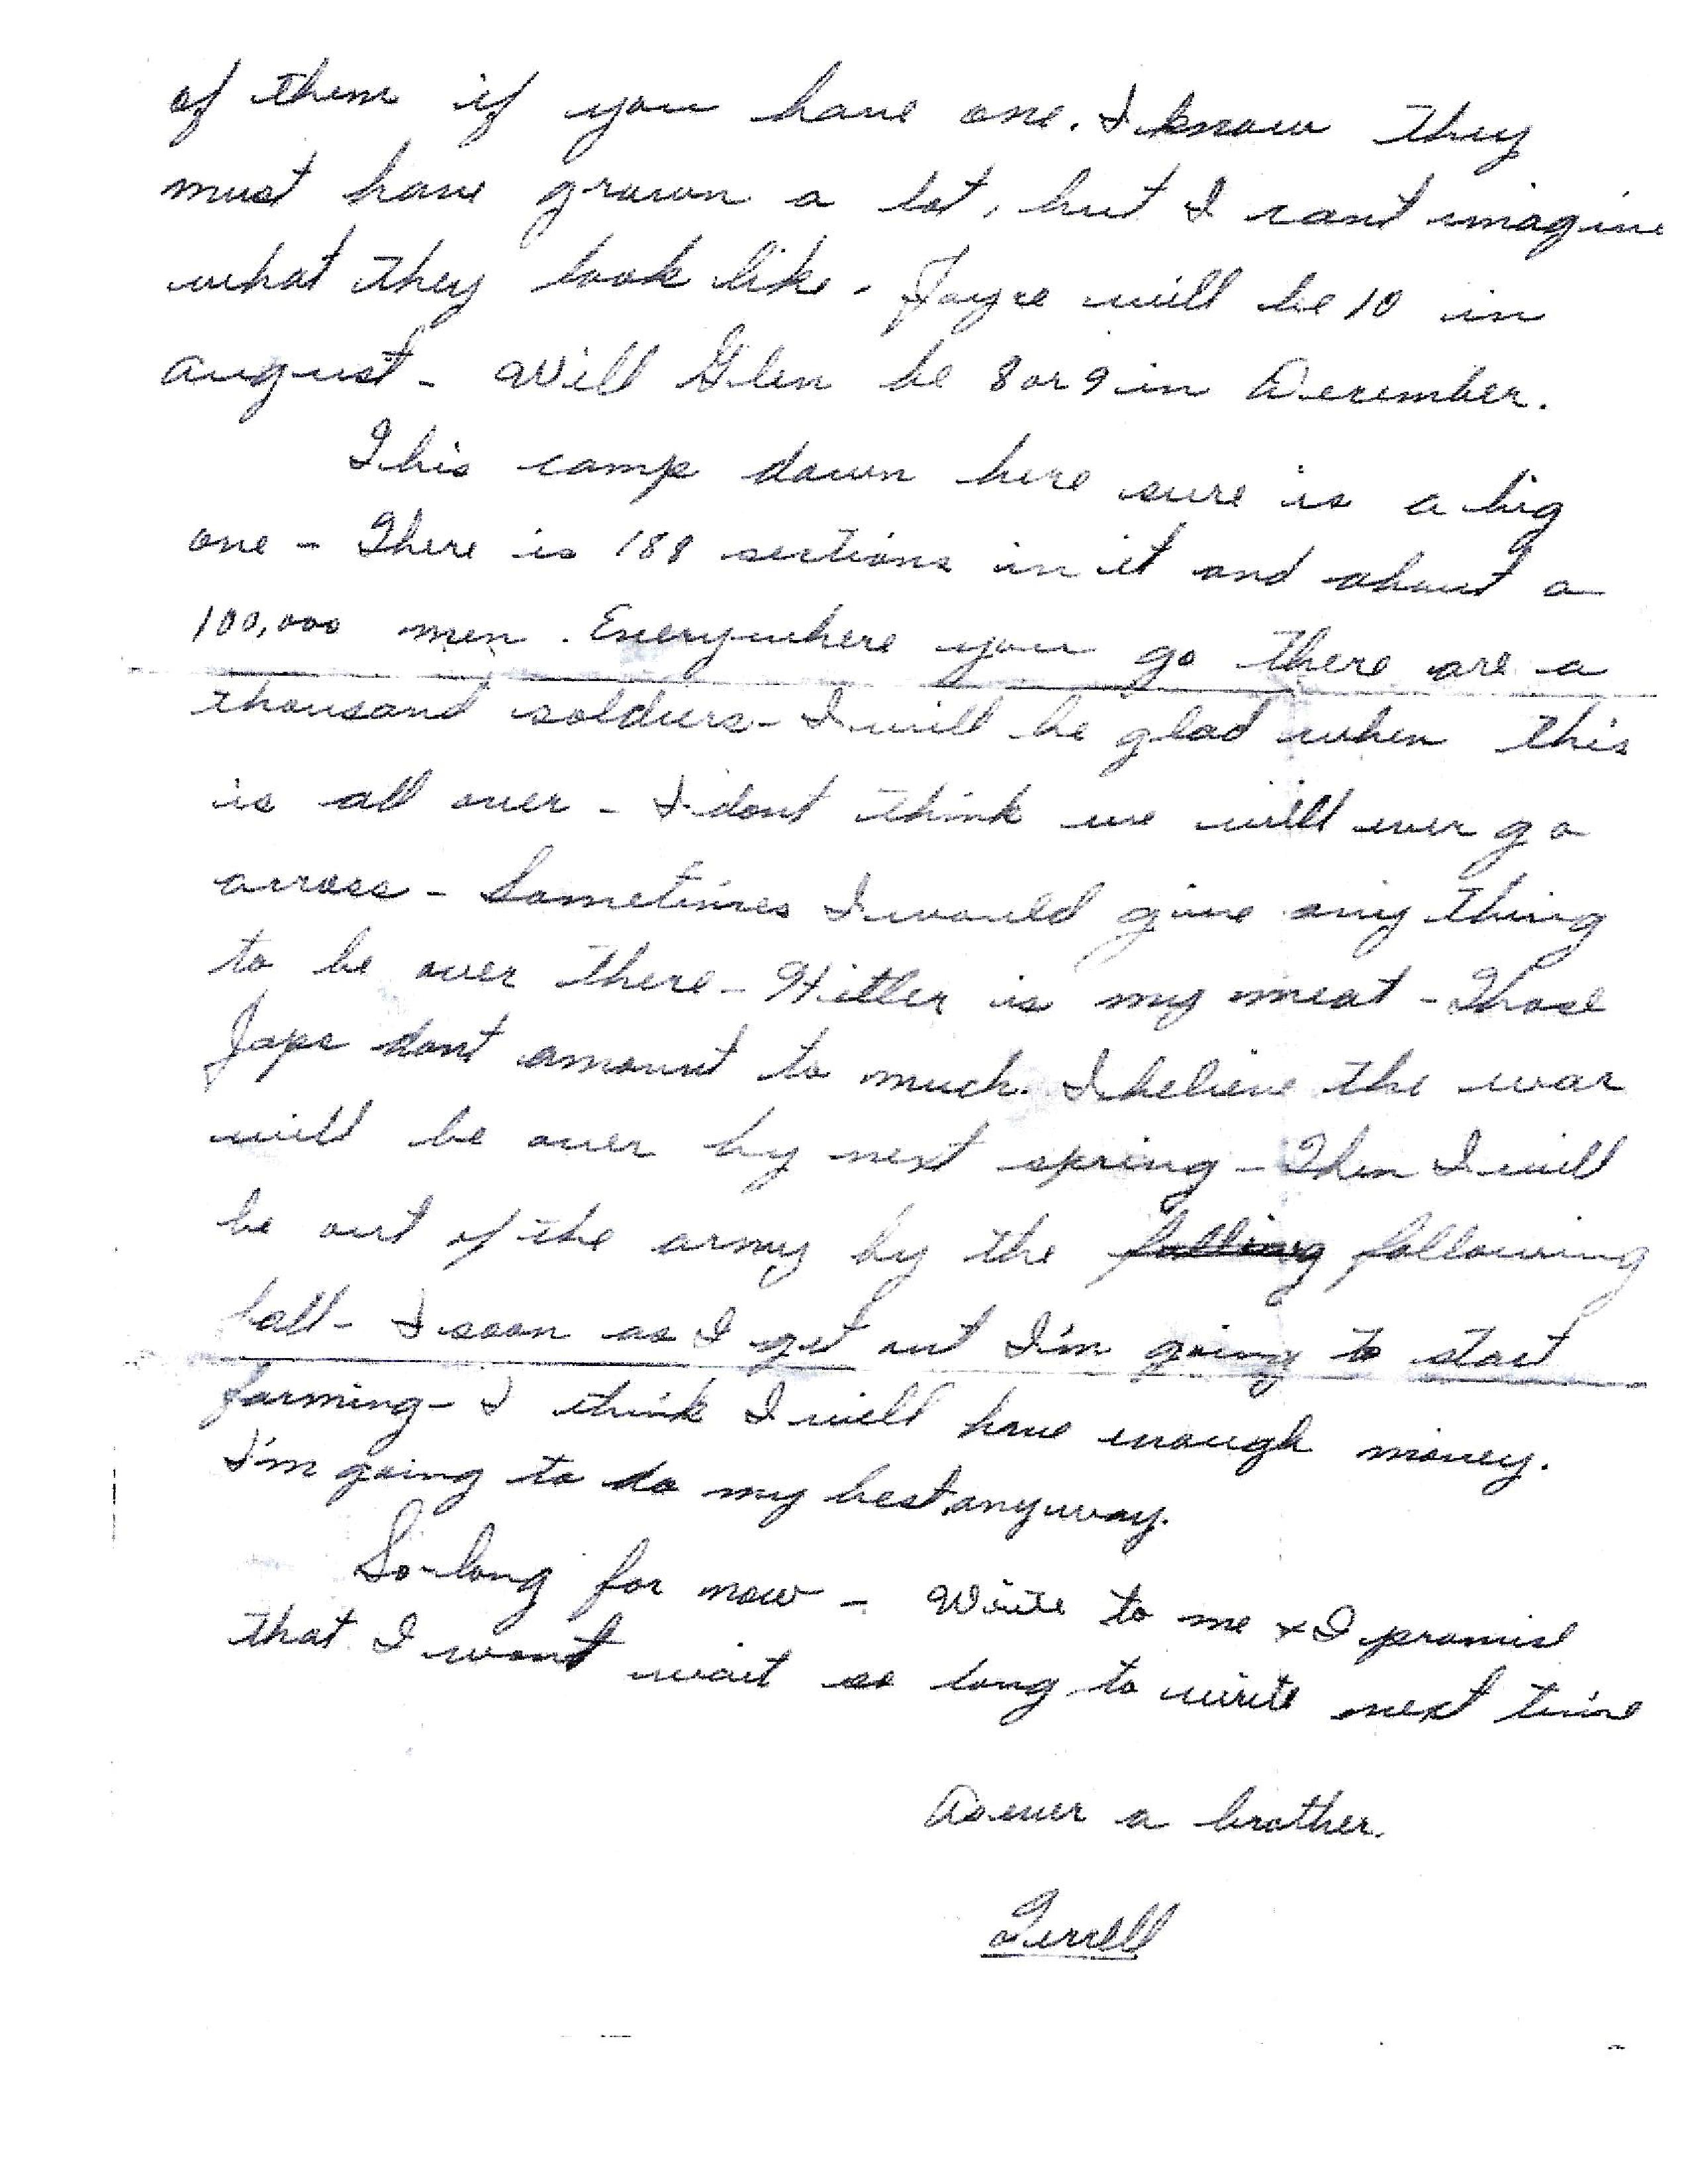 of them if you have one. I know they
must have grown a lot, but I cant imagine
what they look like. Joyce will be 10 in
August - Will Glen be 8 or 9 in December.
This camp down here sure is a big
one - There is 188 sections in it and about a
100,000 men. Everywhere you go there are a
thousand soldiers - I will be glad when this
is all over - I dont think we will ever go
across - Sometimes I would give any thing
to be over there - Hitler is my meat - Those
Japs dont amount to much. I believe the war
will be over by next spring - Then I will
be out of the army by the falling following
fall - I soon as I get out I'm going to start
farming - I think I will have enough money.
I'm going to do my best anyway.
So-long for now - Write to me & I promise
that I wont wait so long to write next time
As ever a brother.
Terrell